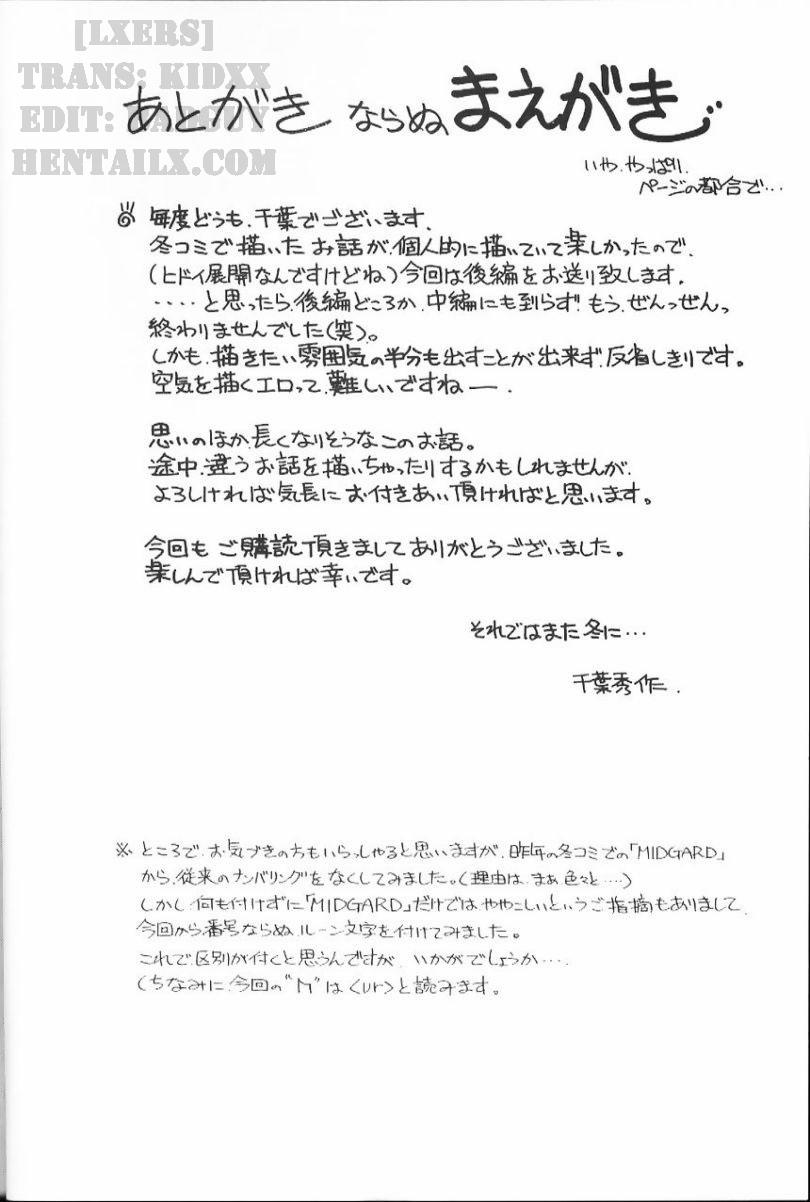 [LXERS]
TRANS: KIDXX
EDIT:
HENTAILX.COM
あとがき ならぬ、まえがき
いや、やっぱり、
ページの都合で…
毎度どうも、千葉でございます、
冬コミで描いたお話が、個人的に描いていて楽しかったので、
(ヒドイ展開なんですけどね)今回は後編をお送り致します。
‥‥と思ったら、後編どころか、中編にも到らず!もう、ぜんっぜんっ
終わりませんでした(笑)。
しかも、描きたい雰囲気の半分も出すことが出来ず、反省しきりです。
空気を描くエロって、難しいですねー.
思いのほか、長くなりそうなこのお話。
途中、違うお話を描いちゃったりするかもしれませんが、
よろしければ気長にお付きあい頂ければと思います。
今回も ご購読頂きましてありがとうございました。
楽しんで頂ければ幸いです。
それではまた冬に…
千葉秀作.
※ ところで、お気づきの方もいらっしゃると思いますが、昨年の冬コミでの「MIDGARD」
から、従来のナンバリングをなくしてみました。(理由は、まぁ色々と‥‥)
しかし何も付けずに「MIDGARD」だけではややこしいというご指摘もありまして、
今回から番号ならぬ、ルーン文字を付けてみました。
これで区別が付くと思うんですが、いかがでしょうか‥‥.
(ちなみに、今回の"ᚢ"は<ur>と読みます。